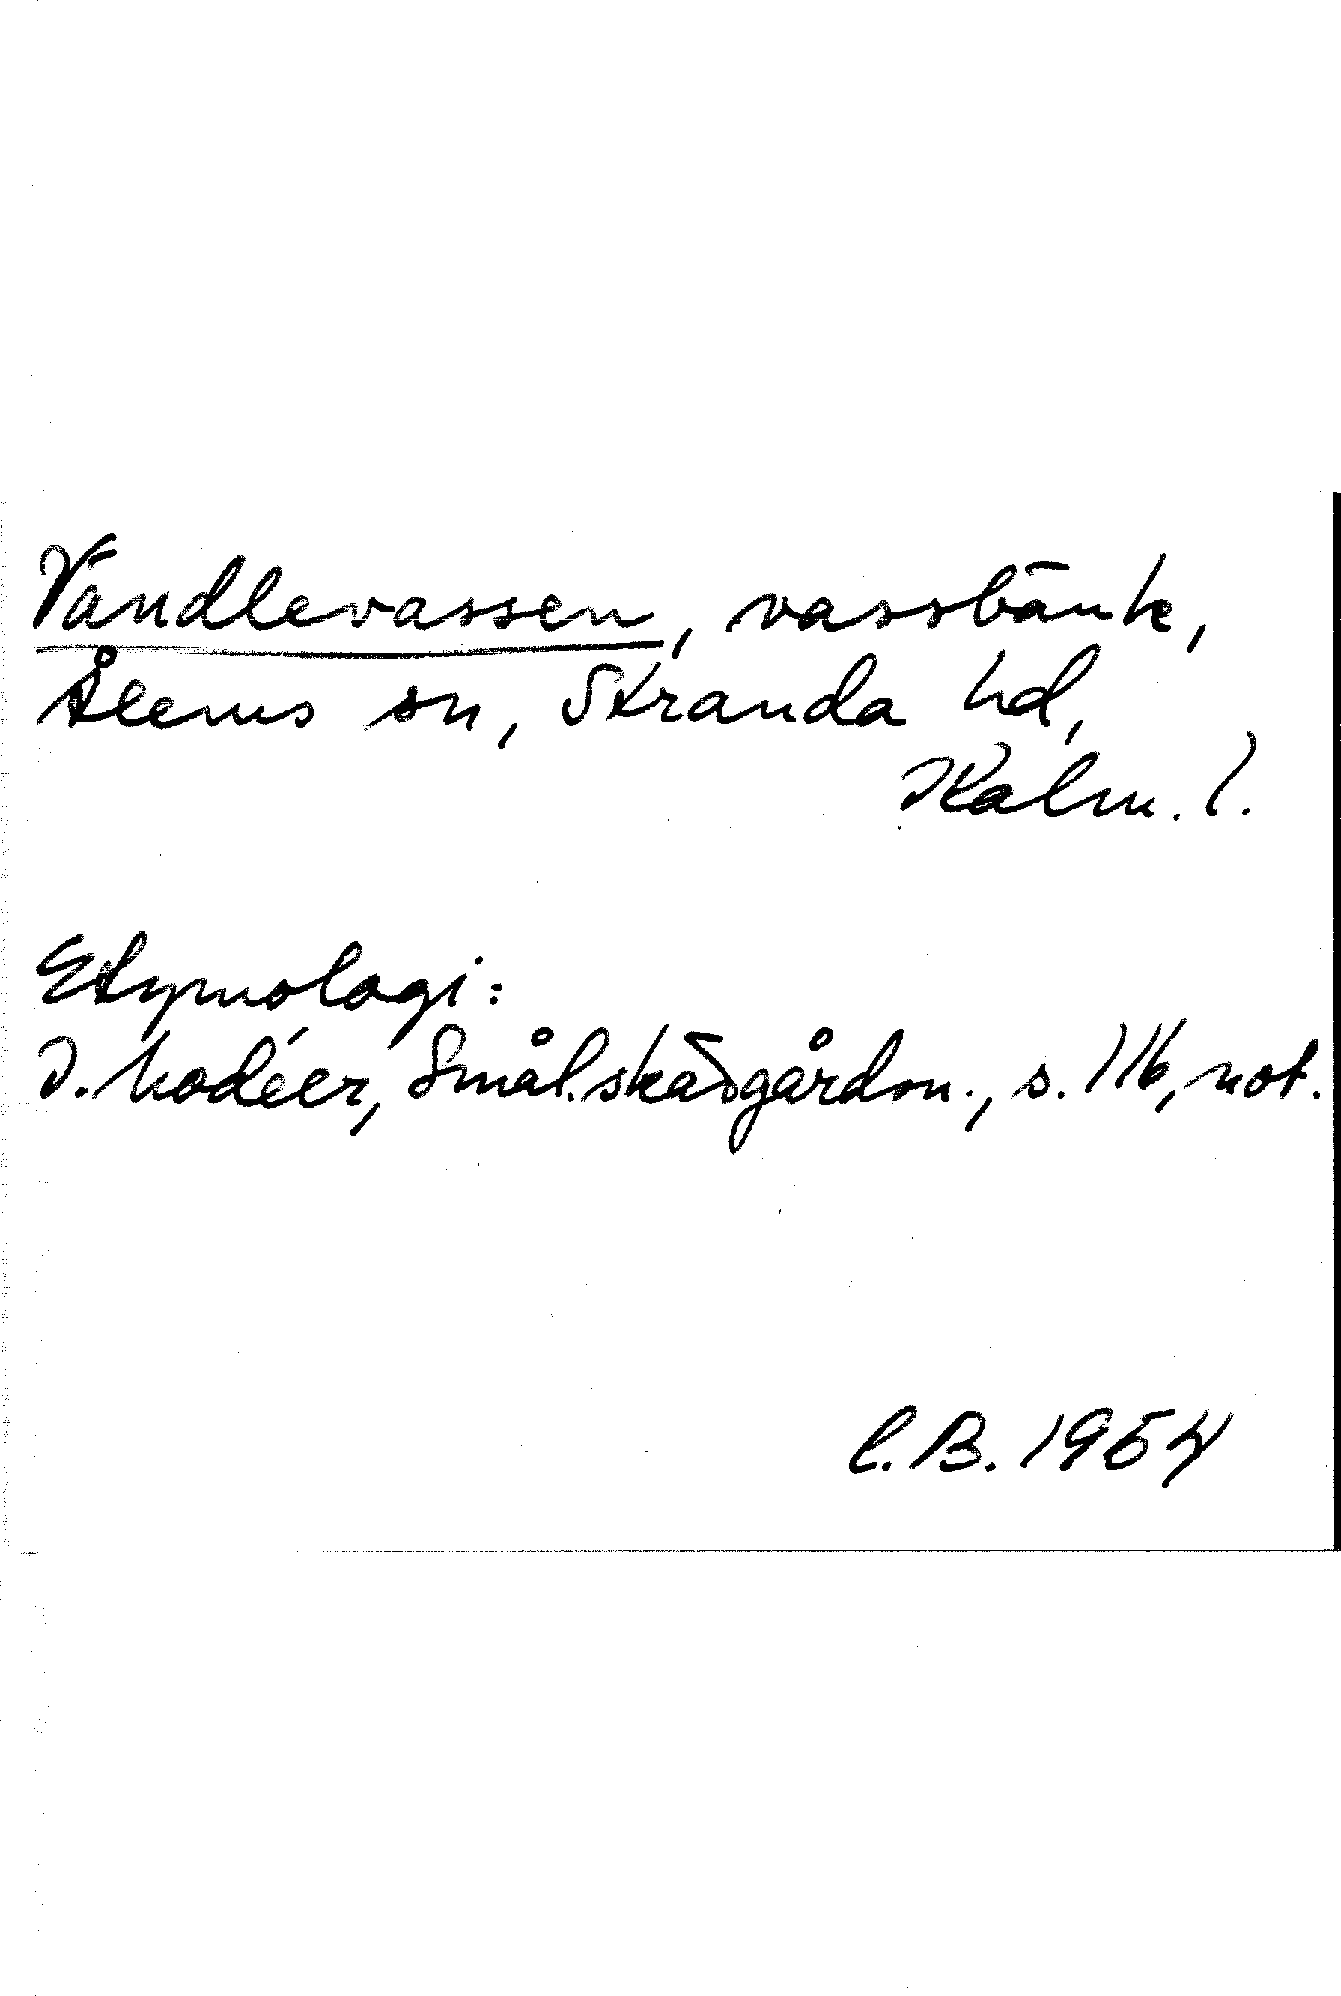 Vändlevassen, vassbänk,
Ålems sn, Stranda hd,
Kalm. l.
Etymologi:
I. Modéer, Smål. skärgårdsn., s. 116, not.
C.B. 1954